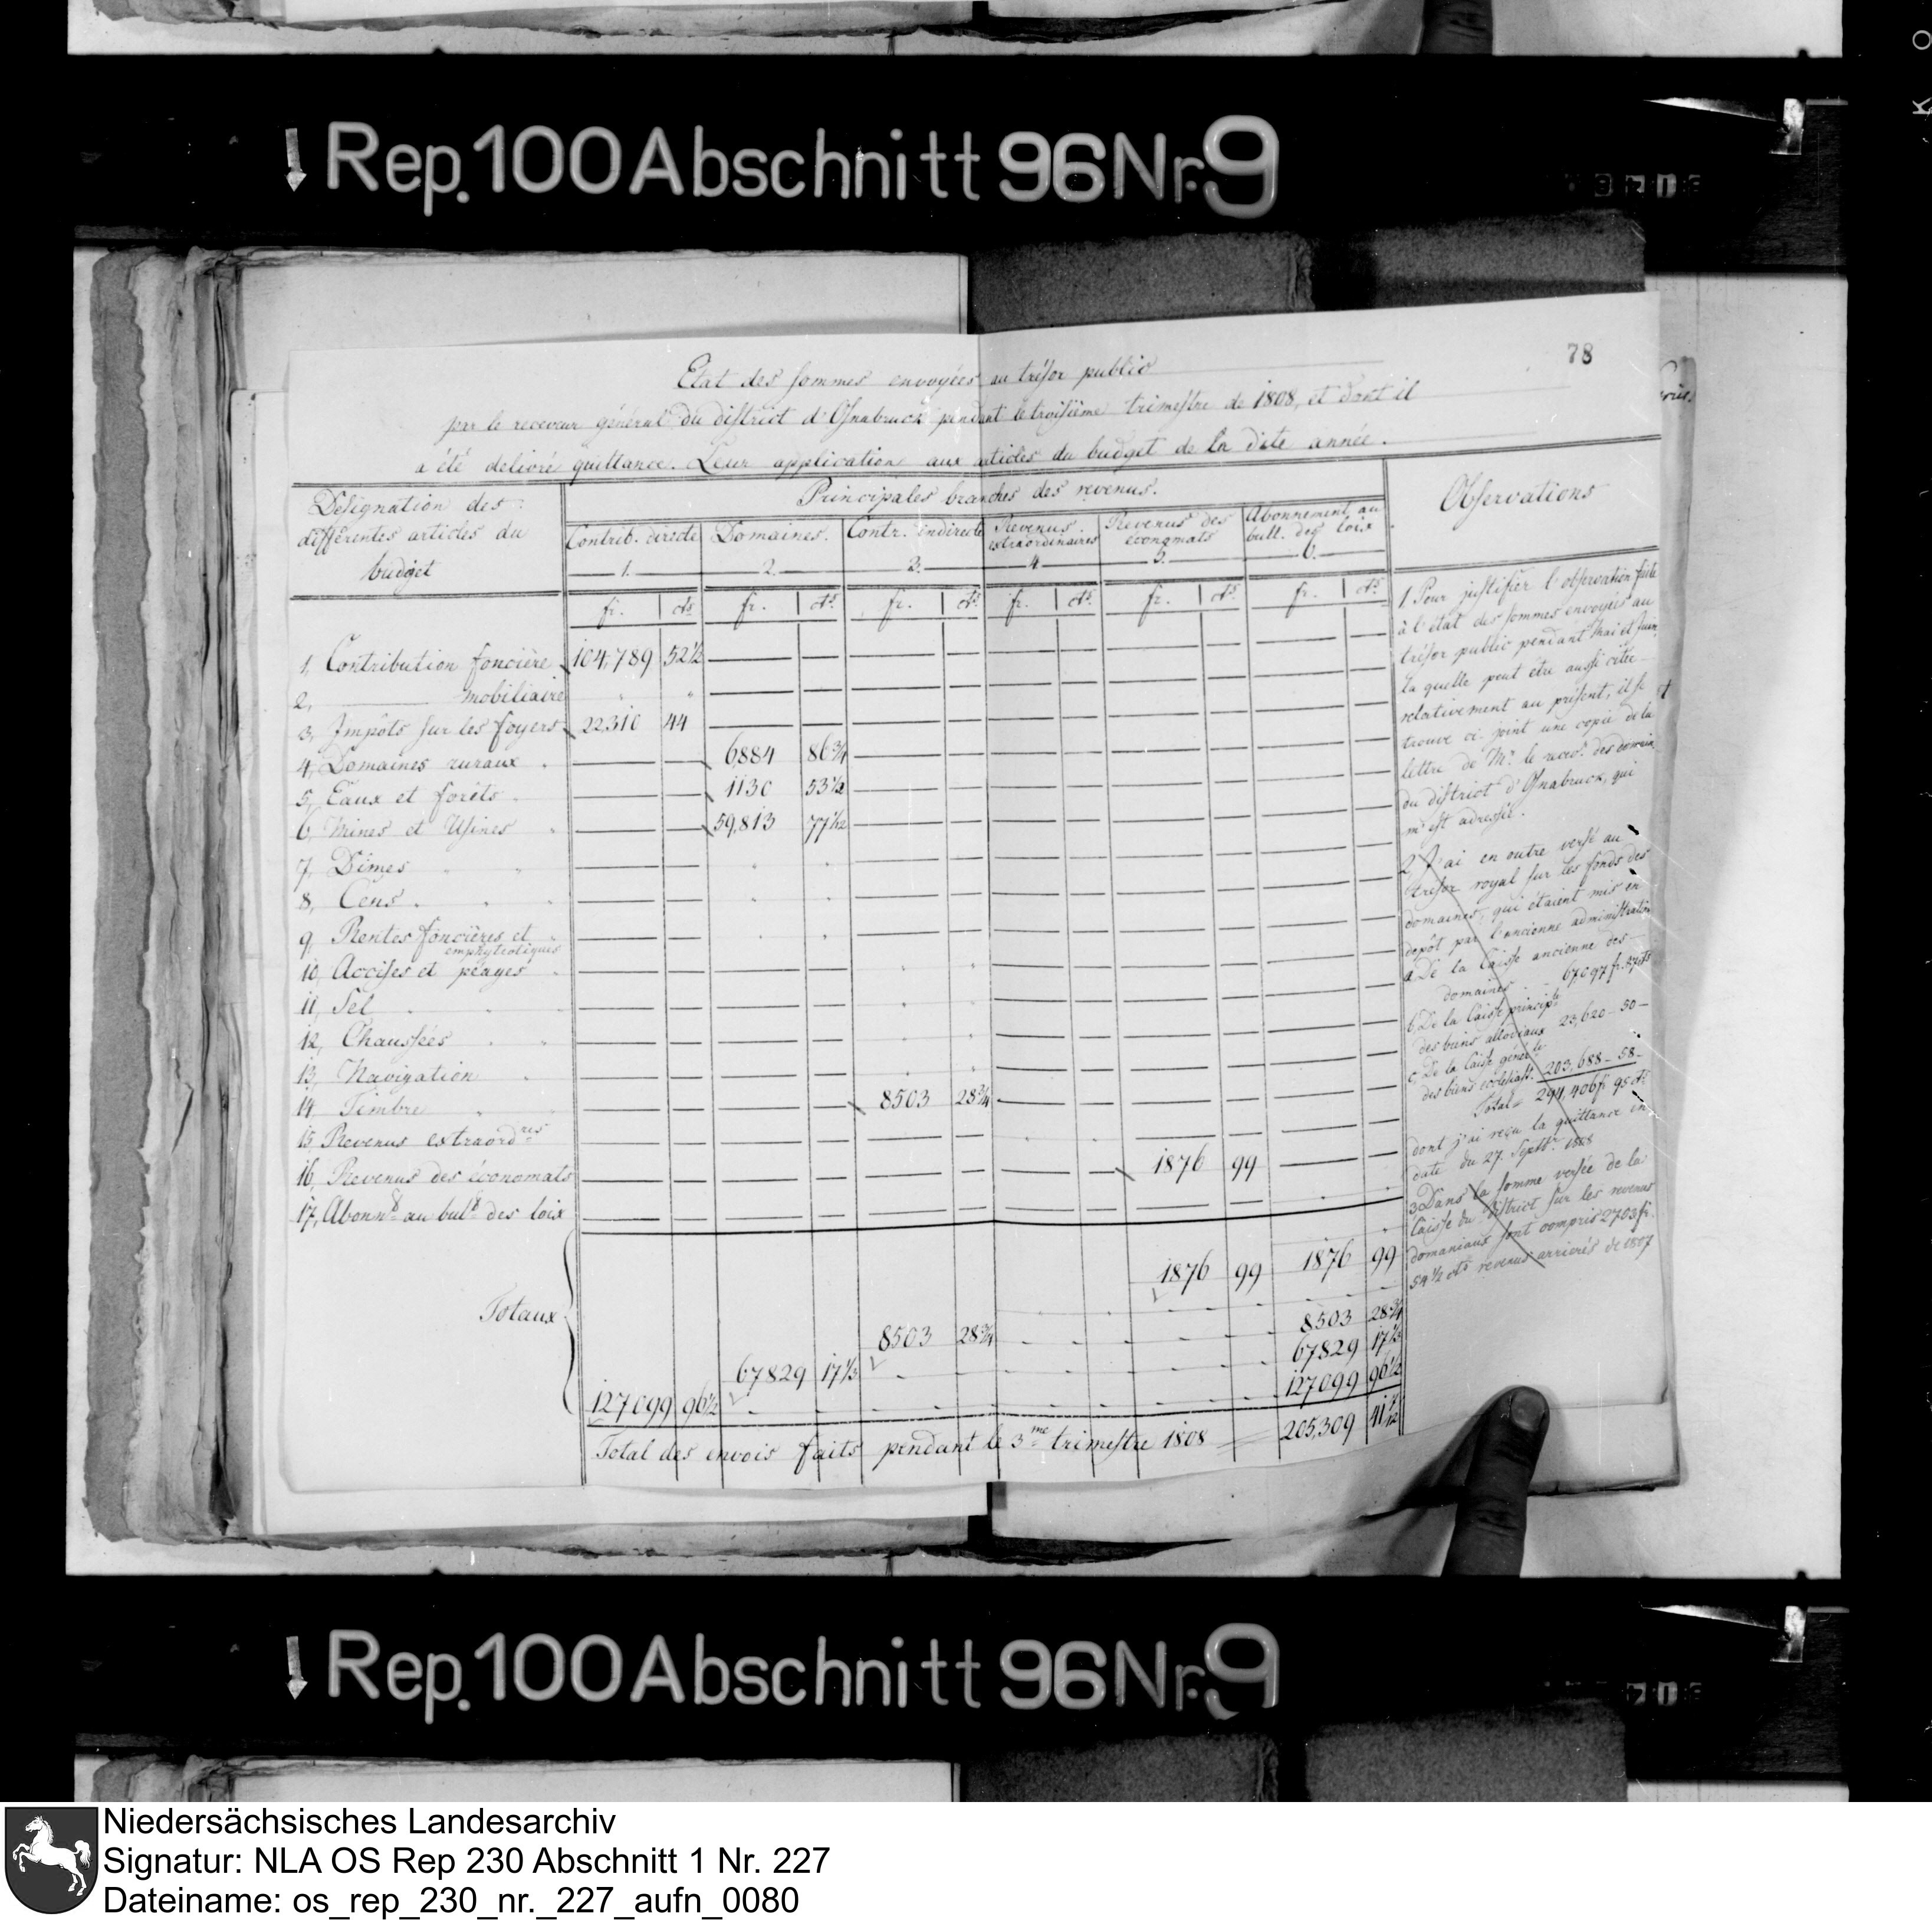 Rep. 100 Abschnitt 96 Nr. 9
78
Etat des sommes envoyées au trésor public
par le receveur général du district d'Osnabruck pendant le troisième trimestre de 1808, et dont il
a été delivré quittance. Leur application aux articles du budget de la dite année.
Désignation des différentes articles du budget
Principales branches des revenus.
Observations
Contrib. directe Domaines. Contr. indirecte Revenus extraordinaires Revenus des économats Abonnement au bull. des loix
1. 2. 3. 4 5. 6.
fr. cts fr. cts fr. cts fr. cts fr. cts fr. cts
1, Contribution foncière 104,789 52½
2, mobiliaire
3, Impôts sur les foyers 22,310 44
4, Domaines ruraux 6884 86¾
5, Eaux et forêts 1130 53½
6, Mines et Usines 59,813 77 1/12
7, Dîmes
8, Cens
9, Rentes foncières et emphyteotiques
10, Accises et péages
11, Sel
12, Chaussées
13, Navigation
14, Timbre 8503 28¾
15, Revenus extraord.res
16, Revenus des économats 1876 99
17, Abonnt au bult des loix
Totaux
1876 99 1876 99
8503 28¾ 8503 28¾
67829 17⅓ 67829 17⅓
127099 96½ 127099 96½
Total des envois faits pendant le 3me trimestre 1808 205,309 41 7/12
1 Pour justifier l'observation faite
à l'état des sommes envoyées au
trésor public pendant Mai et Juin,
la quelle peut être aussi citée
relativement au présent, il se
trouve ci-joint une copie de la
lettre de Mr. le recevr des domain.
du district d'Osnabruck, qui
m'est adressée.
2 J'ai en outre versé au
trésor royal sur les fonds des
domaines, qui étaient mis en
depôt par l'ancienne administration
a, De la Caisse ancienne des
domaines 67,097 fr. 87 cts
b, De la Caisse principle
des biens allodiaux 23,620 - 50 -
c, De la Caisse génerle
des biens ecclesiast. 203,688 - 58 -
Total = 294,406 fr 95 cts
dont j'ai reçu la quittance en
date du 27. Septbr. 1808
3 Dans la somme versée de la
Caisse du District sur les revenus
domaniaux sont compris 2703 fr.
54½ cts revenus arrierés de 1807
Rep. 100 Abschnitt 96 Nr. 9
Niedersächsisches Landesarchiv
Signatur: NLA OS Rep 230 Abschnitt 1 Nr. 227
Dateiname: os_rep_230_nr._227_aufn_0080